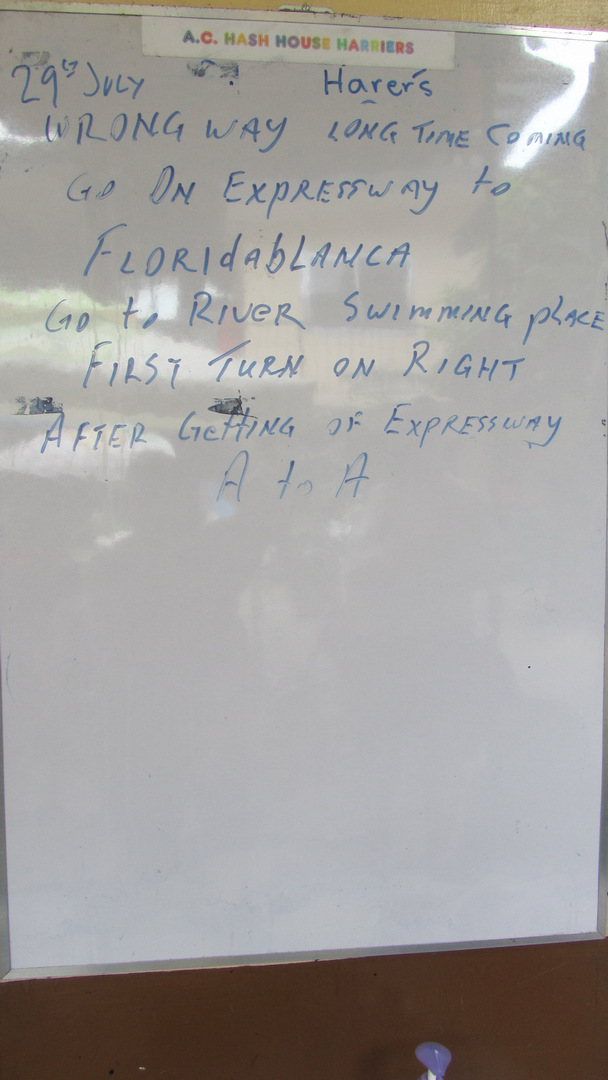 A.C. HASH HOUSE HARRIERS
29th JULY Harer's
WRONG WAY LONG TIME COMING
GO ON EXPRESSWAY to
FLORIdAbLANCA
GO to RIVER SWIMMING pLACE
FIRST TURN ON RIGHT
AFTER GettING OF EXPRESSWAY
A to A